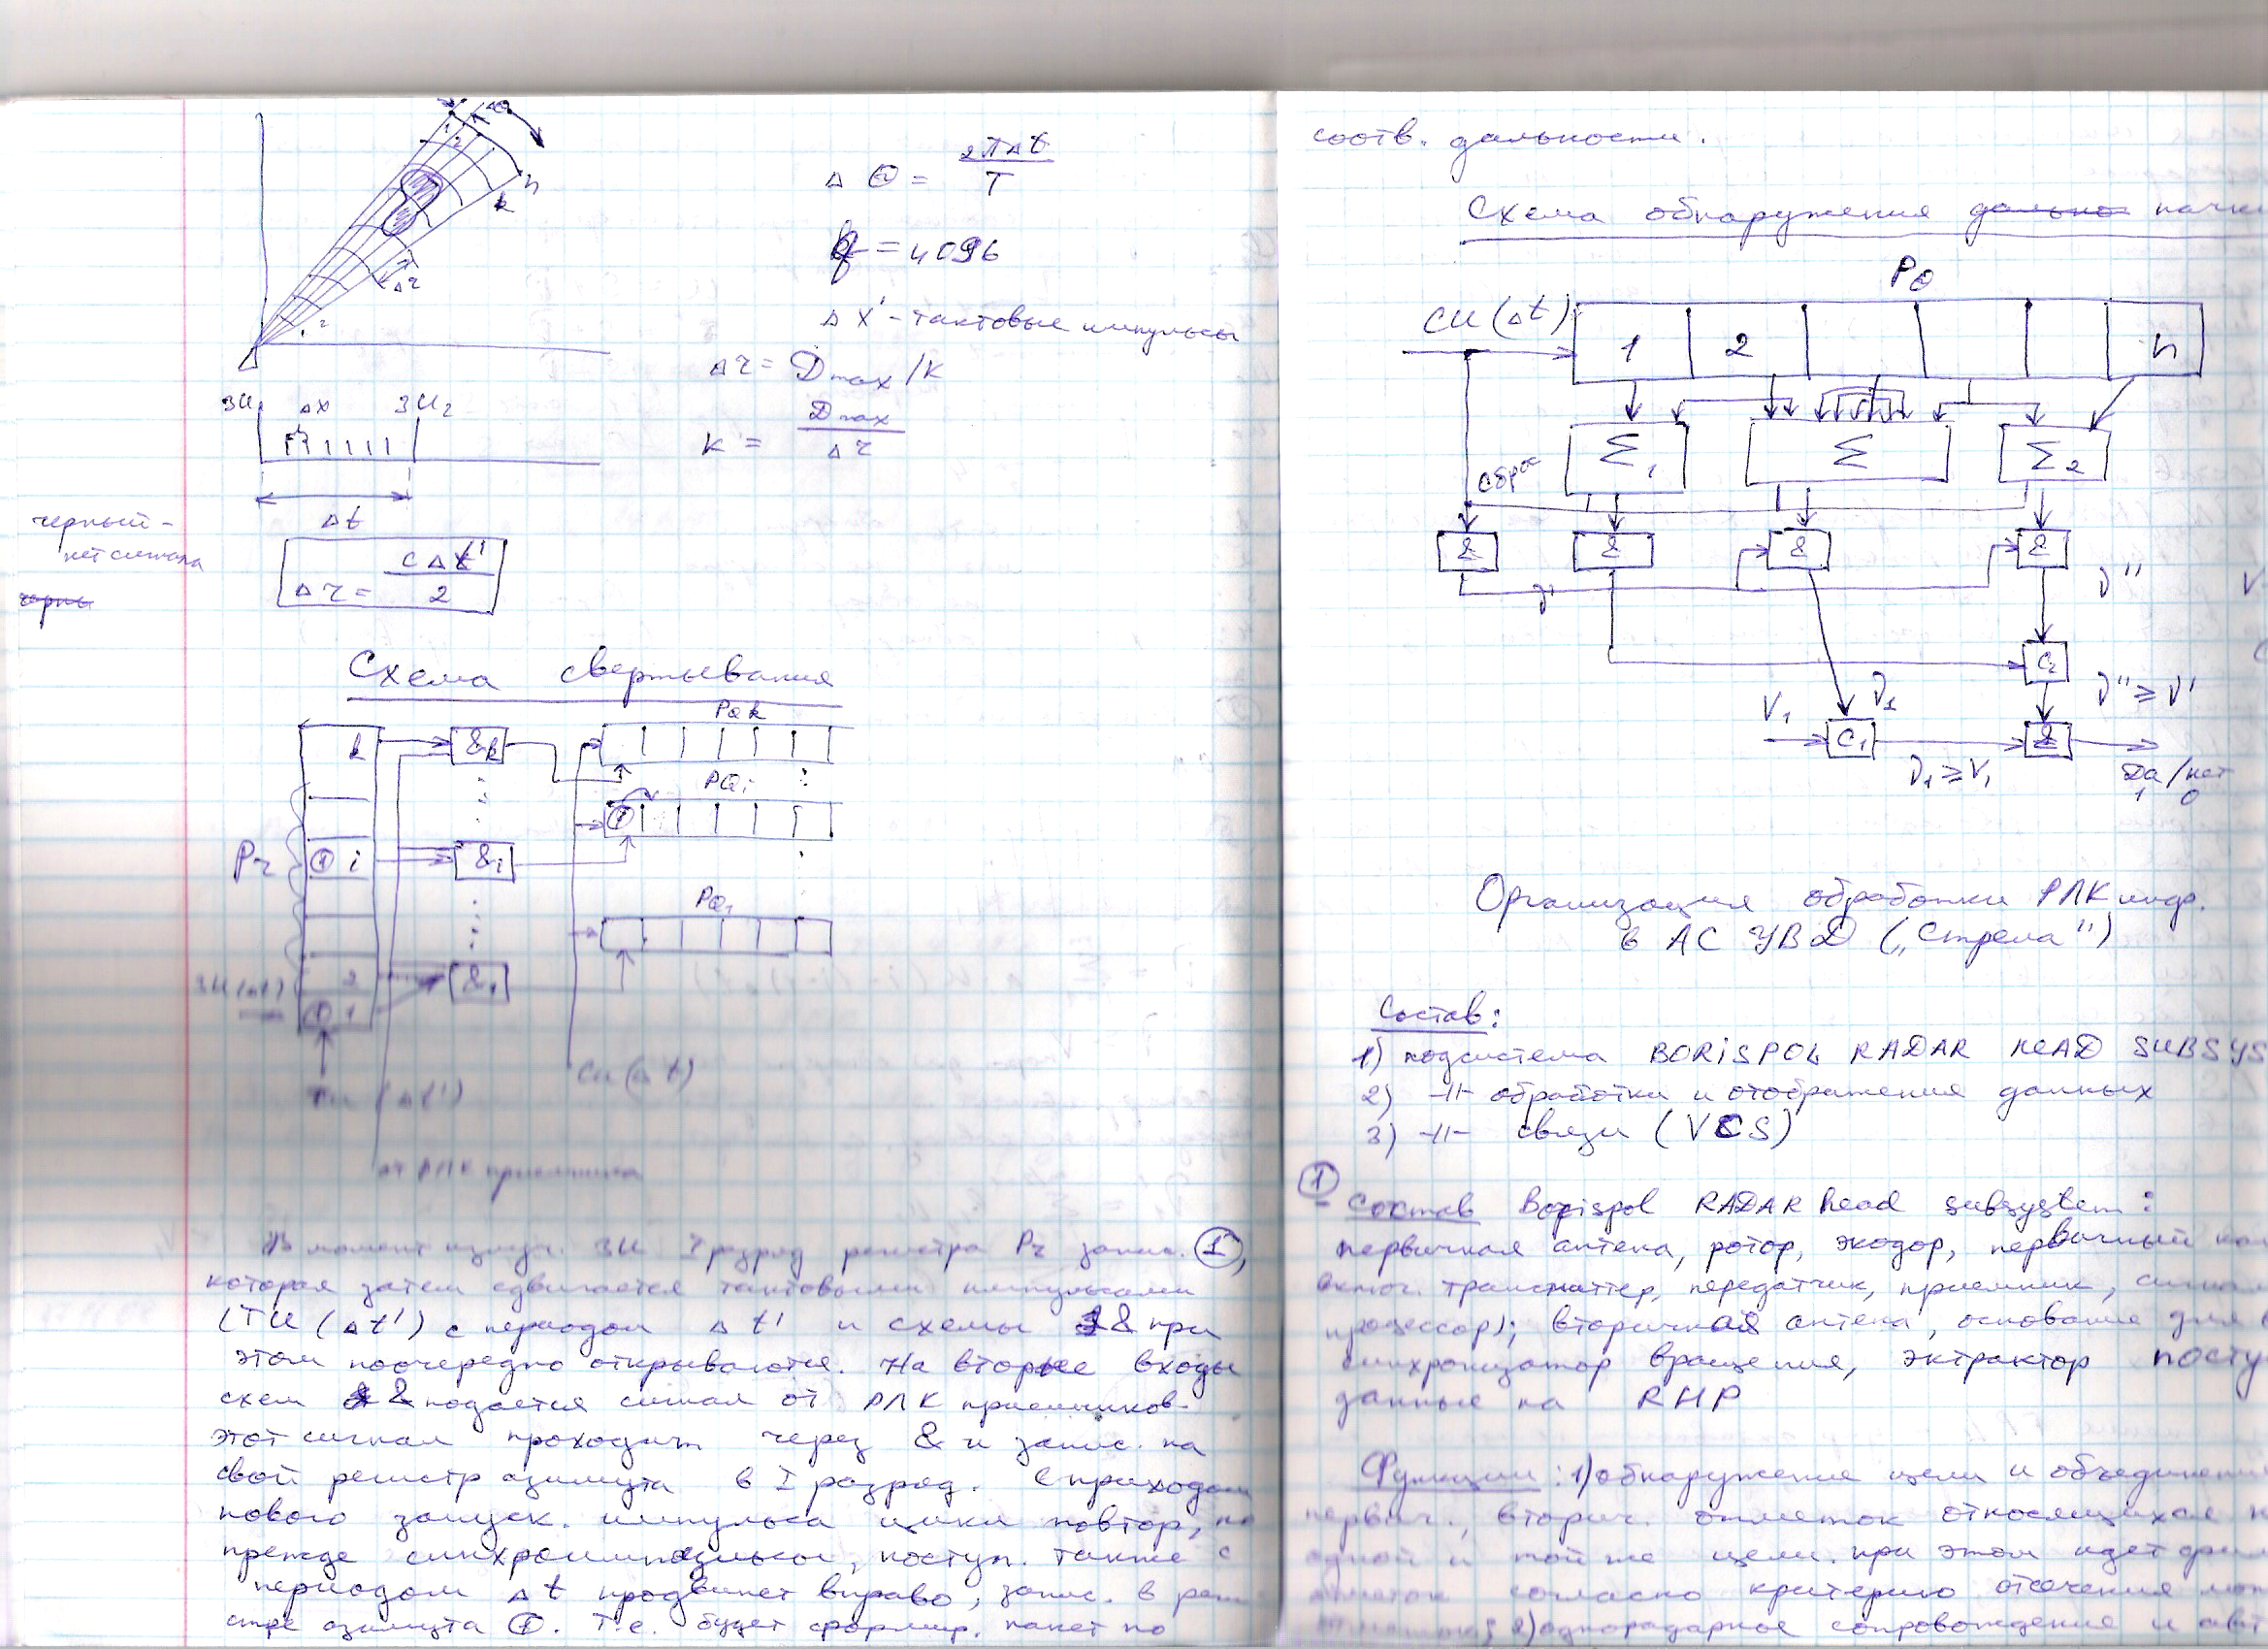 1
2
n
k
Δr
ΔΘ = 2πΔt / T
q = 4096
Δx' - тактовые импульсы
Δr = Dmax/k
k = Dmax / Δr
ЗИ1 Δx ЗИ2
Δt
черный -
нет сигнала
черны
Δr = cΔt' / 2
Схема свертывания
k &k PQk
PQi
Pr 1 i &i 1
PQ1
ЗИ (Δt) 2 &1
1 1
ТИ (Δt') СИ (Δt)
от РЛК приемника
В момент излуч. ЗИ I разряд регистра Pr запис. 1,
которая затем сдвигается тактовыми импульсами
(ТИ (Δt') с периодом Δt' и схемы & при
этом поочередно открываются. На вторые входы
схем & подается сигнал от РЛК приемников.
этот сигнал проходит через & и запис. на
свой регистр азимута в I разряд. С приходом
нового запуск. импульса цикл повтор, но
прежде синхроимпульсы, поступ. также с
периодом Δt продвинет вправо, запис. в реги
стре азимута 1. Т.е. будет сформир. пакет по
соотв. дальности.
Схема обнаружения дально пачки
PQ
СИ (Δt) 1 2 n
Σ1 Σ Σ2
сброс
& & & &
ν' ν''
C2
ν'' ≥ ν'
V1 ν1
C1 &
ν1 ≥ V1 Да/нет
1 0
Организация обработки РЛК инф.
в АС УВД („Стрела")
Состав:
1) подсистема BORISPOL RADAR HEAD SUBSYS
2) -//- обработки и отображения данных
3) -//- связи (VCS)
1
Состав Borispol RADAR head subsystem:
первичная антена, ротор, экодор, первичный
включ. трансмиттер, передатчик, приемник,
процессор); вторичная антена, основание для
синхронизатор вращения, экстрактор посту
данные на RHP
Функции: 1) обнаружение цели и объединение
первич., вторич. отметок относящихся
одной и той же цели. при этом идет
отметок согласно критерию отсечения
2) однорадарное сопровождение и